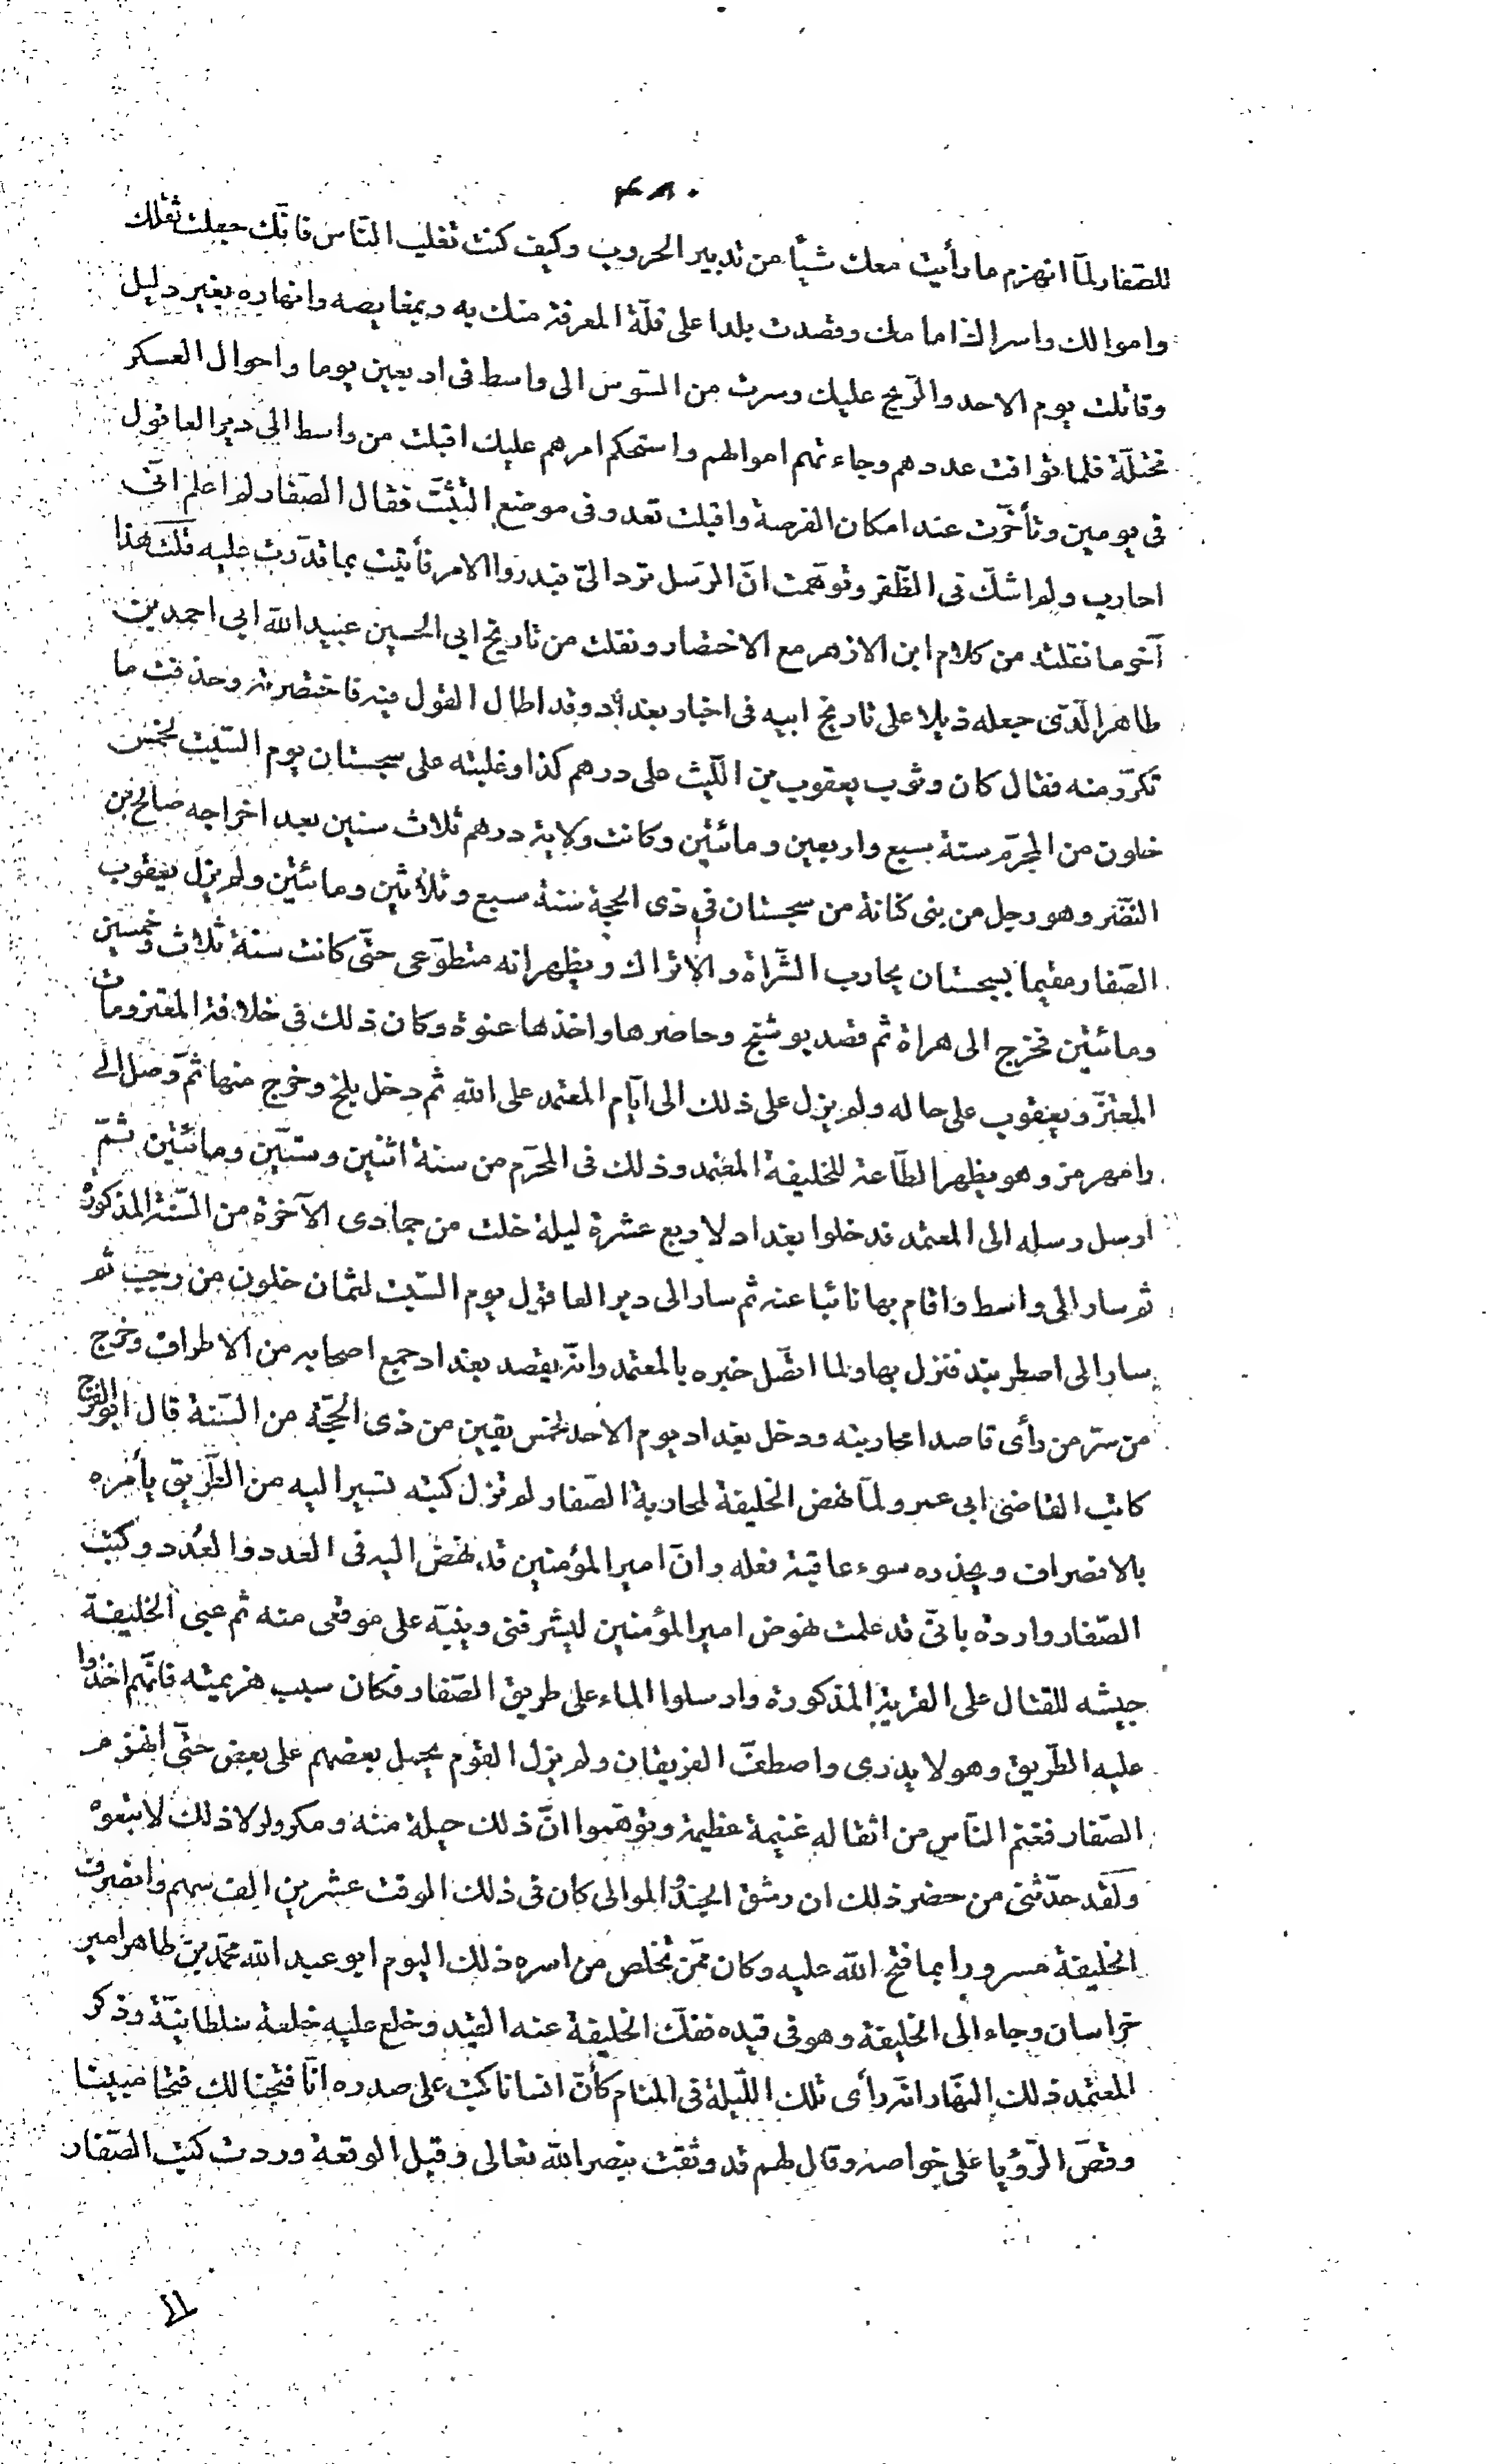 للصّفار لمّا انهزم ما رأيت معك شيأ من تدبير الحروب وكيف كنت تغلب النّاس فانّك جعلت ثقلك
واموالك واسراك امامك وقصدت بلدا على قلّة المعرفة منك به وبمغايضه وانهاره بغير دليل
وقاتلت يوم الاحد والرّيح عليك وسرت من السّوس الى واسط فى اربعين يوما واحوال العسكر
مختلّة فلما توافت عددهم وجاءتهم اموالهم واستحكم امرهم عليك اقبلت من واسط الى دير العاقول
فى يومين وتأخّرت عند امكان الفرصة واقبلت تعدو فى موضع التثبّت فقال الصّفار لم اعلم انّى
احارب ولم اشكّ فى الظّفر وتوهّمت انّ الرّسل ترد الىّ فيدروا الامر فأتيت بما قدّرت عليه قلت هذا
آخر ما نقلته من كلام ابن الازهر مع الاختصار ونقلت من تاريخ ابى الحسين عبيد الله ابى احمد بن
طاهر الّذى جعله ذيلا على تاريخ ابيه فى اخبار بغداد وقد اطال القول فيه فاختصرته وحذفت ما
تكرّر منه فقال كان وثوب يعقوب بن اللّيث على درهم كذا وغلبته على سجستان يوم السّبت لخمس
خلون من المحرّم سنة سبع واربعين ومائتين وكانت ولاية درهم ثلاث سنين بعد اخراجه صالح بن
النّضر وهو رجل من بنى كنانة من سجستان فى ذى الحجة سنة سبع وثلاثين ومائتين ولم يزل يعقوب
الصّفار مقيما بسجستان يحارب الشّراة والاتراك ويظهر انه متطوّعى حتّى كانت سنة ثلاث وخمسين
ومائتين فخرج الى هراة ثم قصد بوشنج وحاصرها واخذها عنوة وكان ذلك فى خلافة المعتز ومات
المعتزّ ويعقوب على حاله ولم يزل على ذلك الى ايّام المعتمد على الله ثم دخل بلخ وخرج منها ثمّ وصل الى
رامهرمز وهو يظهر الطّاعة للخليفة المعتمد وذلك فى المحرّم من سنة اثنين وستّين ومائتين ثمّ
ارسل رسله الى المعتمد فدخلوا بغداد لاربع عشرة ليلة خلت من جمادى الآخرة من السّنة المذكورة
ثم سار الى واسط واقام بها نائبا عنه ثم سار الى دير العاقول يوم السّبت لثمان خلون من رجب ثم
سار الى اصطربند فنزل بها ولما اتّصل خبره بالمعتمد وانّه يقصد بغداد جمع اصحابه من الاطراف وخرج
من سرّ من رأى قاصدا محاربته ودخل بغداد يوم الاحد لخمس بقين من ذى الحجّة من السّنة قال ابو الفرج
كاتب القاضى ابى عمر ولمّا نهض الخليفة لمحاربة الصّفار لم تزل كتبه تسير اليه من الطّريق يأمره
بالانصراف ويحذره سوء عاقبة فعله وانّ امير المؤمنين قد نهض اليه فى العدد والعُدد وكتب
الصّفار واردة بانّى قد علمت نهوض امير المؤمنين ليشرفنى وينبّه على موقعى منه ثم عبى الخليفة
جيشه للقتال على القرية المذكورة وارسلوا الماء على طريق الصّفار فكان سبب هزيمته فانّهم اخذوا
عليه الطّريق وهو لا يدرى واصطفّ الفريقان ولم يزل القوم يحمل بعضهم على بعض حتّى انهزم
الصّفار فغنم النّاس من اثقاله غنيمة عظيمة وتوهّموا انّ ذلك حيلة منه ومكر ولولا ذلك لاتبعوه
ولقد حدّثنى من حضر ذلك ان رشق الجند والموالى كان فى ذلك الوقت عشرين الف سهم وانصرف
الخليفة مسرورا بما فتح الله عليه وكان ممّن تخلص من اسره ذلك اليوم ابو عبد الله محمّد بن طاهر امير
خراسان وجاء الى الخليفة وهو فى قيده ففكّ الخليفة عنه القيد وخلع عليه خلعة سلطانيّة وذكر
المعتمد ذلك النهّار انّه رأى تلك اللّيلة فى المنام كأنّ انسانا كتب على صدره انّا فتحنا لك فتحا مبينا
وقصّ الرّؤيا على خواصه وقال لهم قد وثقت بنصر الله تعالى وقبل الوقعة وردت كتب الصّفار